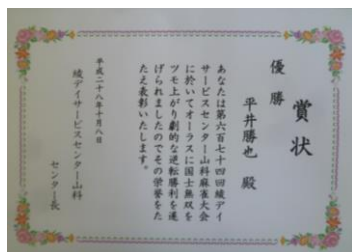 賞状
優勝
平井勝也 殿
あなたは第六百七十四回綾デイ
サービスセンター山科麻雀大会
に於いてオーラスに国士無双を
ツモ上がり劇的な逆転勝利を遂
げられましたのでその栄誉をた
たえ表彰いたします。
平成二十八年十月八日
綾デイサービスセンター山科
センター長